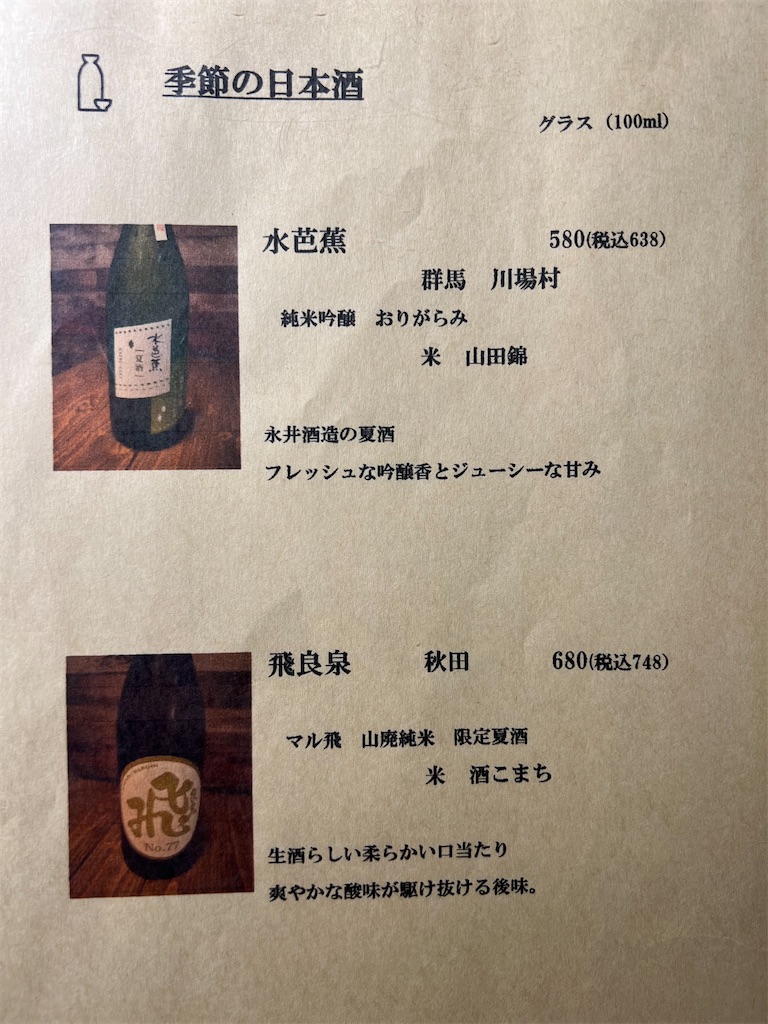 季節の日本酒
グラス（100ml）
水芭蕉 580(税込638)
群馬 川場村
純米吟醸 おりがらみ
米 山田錦
永井酒造の夏酒
フレッシュな吟醸香とジューシーな甘み
水芭蕉
夏酒
飛良泉 秋田 680(税込748)
マル飛 山廃純米 限定夏酒
米 酒こまち
生酒らしい柔らかい口当たり
爽やかな酸味が駆け抜ける後味。
飛
No.77